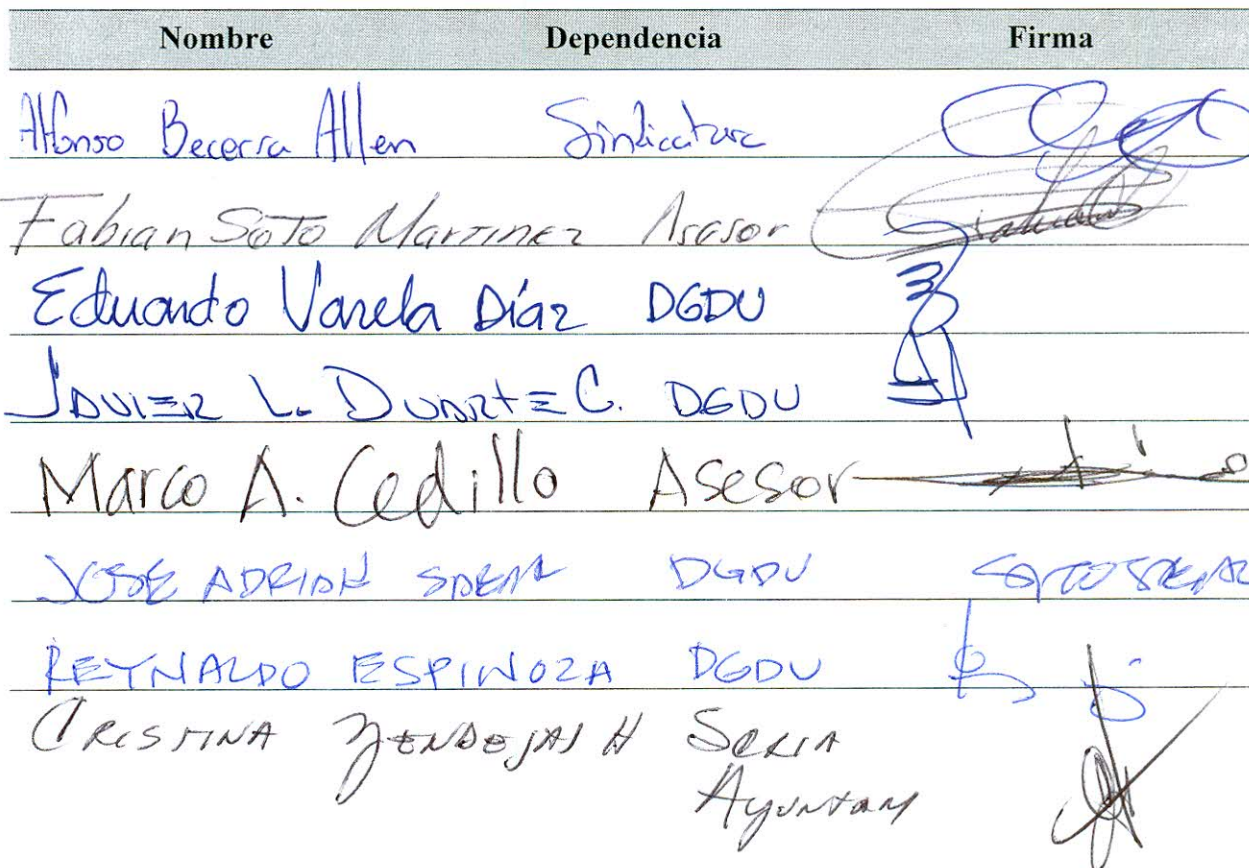 Nombre Dependencia Firma
Alfonso Becerra Allen Sindicatura
Fabian Soto Martinez Asesor
Eduardo Varela Díaz DGDU
Javier L. Duarte C. DGDU
Marco A. Cedillo Asesor
JOSE ADRIAN DGDU
REYNALDO ESPINOZA DGDU
CRISTINA ZENDEJAS H SCRIA
Ayuntam